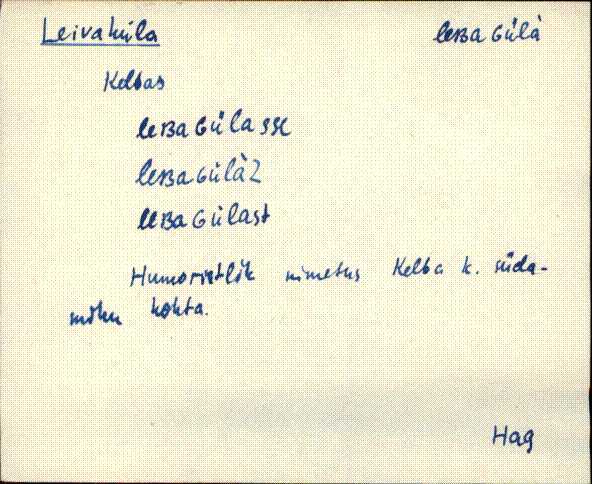 Leivaküla leʙaGülà
Kelbas
leʙaGülasse
leʙaGülàZ
leʙaGülast
Humoristlik nimetus Kelba k. süda-
kohta.
Hag